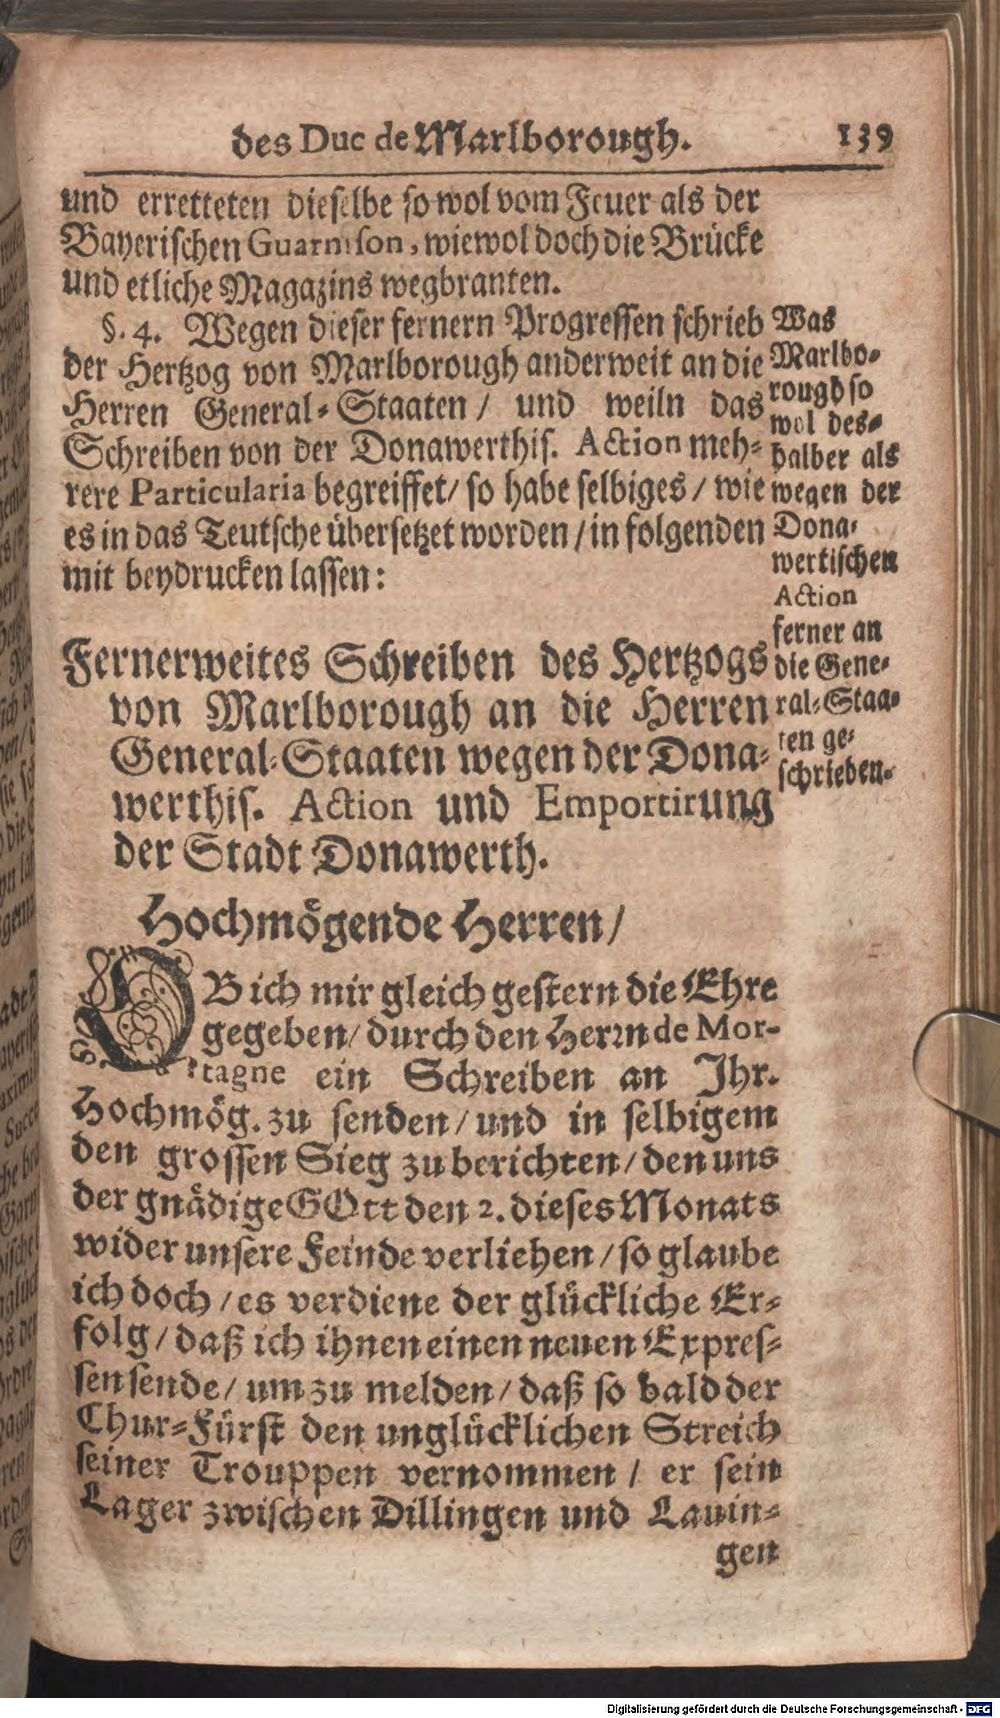 des Duc de Marlborough. 139
und erretteten dieselbe so wol vom Feuer als der
Bayerischen Guarnison, wiewol doch die Brücke
und etliche Magazins wegbranten.
§. 4. Wegen dieser fernern Progressen schrieb
der Hertzog von Marlborough anderweit an die
Herren General-Staaten / und weiln das
Schreiben von der Donawerthis. Action meh-
rere Particularia begreiffet / so habe selbiges / wie
es in das Teutsche übersetzet worden / in folgenden
mit beydrucken lassen:
Was
Marlbo-
rough so
wol des-
halber als
wegen der
Dona-
wertischen
Action
ferner an
die Gene-
ral-Staa-
ten ge-
schrieben.
Fernerweites Schreiben des Hertzogs
von Marlborough an die Herren
General-Staaten wegen der Dona-
werthis. Action und Emportirung
der Stadt Donawerth.
Hochmögende Herren /
OB ich mir gleich gestern die Ehre
gegeben / durch den Herrn de Mor-
tagne ein Schreiben an Ihr.
Hochmög. zu senden / und in selbigem
den grossen Sieg zu berichten / den uns
der gnädige GOtt den 2. dieses Monats
wider unsere Feinde verliehen / so glaube
ich doch / es verdiene der glückliche Er-
folg / daß ich ihnen einen neuen Expres-
sen sende / um zu melden / daß so bald der
Chur-Fürst den unglücklichen Streich
seiner Trouppen vernommen / er sein
Lager zwischen Dillingen und Lauin-
gen
Digitalisierung gefördert durch die Deutsche Forschungsgemeinschaft - DFG